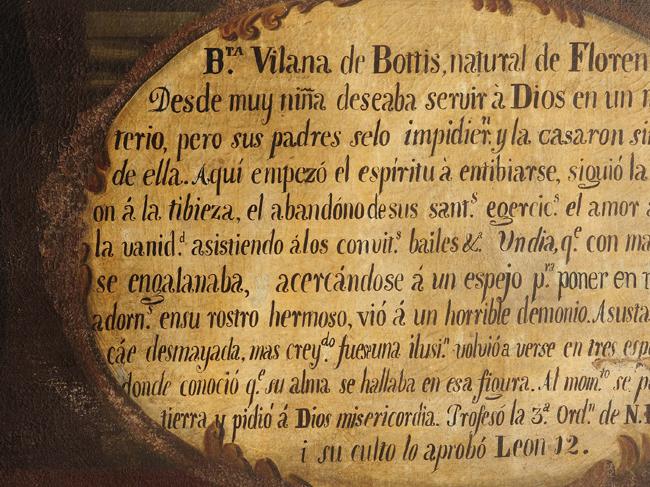 B.ᵀᴬ Vilana de Bottis, natural de Floren
Desde muy niña deseaba servir à Dios en un
terio, pero sus padres selo impidier.ⁿ y la casaron si
de ella. Aquí empezó el espíritu à entibiarse, siguió la
on á la tibieza, el abandóno de sus sant.ˢ egercic.ˢ el amor
la vanid.ᵈ asistiendo álos convit.ˢ bailes &.ª Un dia, q.ᵉ con ma
se engalanaba, acercándose á un espejo p.ʳᵃ poner en
adorn.ˢ ensu rostro hermoso, vió á un horrible demonio. Asusta
cáe desmayada, mas crey.ᵈᵒ fuese una ilusi.ⁿ volvió a verse en tres esp
donde conoció q.ᵉ su alma se hallaba en esa figura. Al mom.ᵗᵒ se p
tierra y pidió á Dios misericordia. Profesó la 3.ª Ord.ⁿ de N.
i su culto lo aprobó Leon 12.